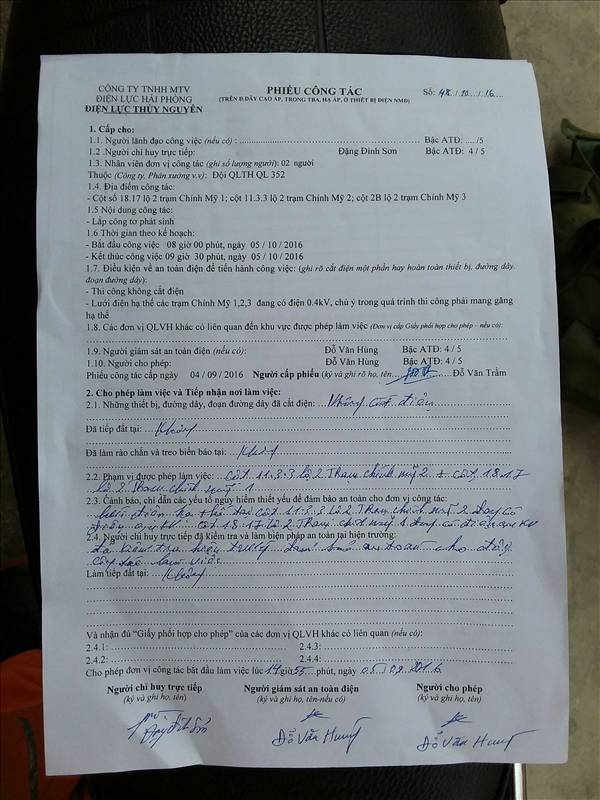 CÔNG TY TNHH MTV
ĐIỆN LỰC HẢI PHÒNG
ĐIỆN LỰC THỦY NGUYÊN
PHIẾU CÔNG TÁC
(TRÊN Đ.DÂY CAO ÁP, TRONG TBA, HẠ ÁP, Ở THIẾT BỊ ĐIỆN NMĐ)
Số: 48./.10./.16
1. Cấp cho:
1.1. Người lãnh đạo công việc (nếu có) : Bậc ATĐ: .... /5
1.2 .Người chỉ huy trực tiếp: Đặng Đình Sơn Bậc ATĐ: 4 / 5
1.3. Nhân viên đơn vị công tác (ghi số lượng người): 02 người
Thuộc (Công ty, Phân xưởng v.v): Đội QLTH QL 352
1.4. Địa điểm công tác:
- Cột số 18.17 lộ 2 trạm Chính Mỹ 1; cột 11.3.3 lộ 2 trạm Chính Mỹ 2; cột 2B lộ 2 trạm Chính Mỹ 3
1.5 Nội dung công tác:
- Lắp công tơ phát sinh
1.6 Thời gian theo kế hoạch:
- Bắt đầu công việc 08 giờ 00 phút, ngày 05 / 10 / 2016
- Kết thúc công việc 09 giờ 30 phút, ngày 05 / 10 / 2016
1.7. Điều kiện về an toàn điện để tiến hành công việc: (ghi rõ cắt điện một phần hay hoàn toàn thiết bị, đường dây,
đoạn đường dây):
- Thi công không cắt điện
- Lưới điện hạ thế các trạm Chính Mỹ 1,2,3 đang có điện 0.4kV, chú ý trong quá trình thi công phải mang găng
hạ thế
1.8. Các đơn vị QLVH khác có liên quan đến khu vực được phép làm việc (Đơn vị cấp Giấy phối hợp cho phép – nếu có):
1.9. Người giám sát an toàn điện (nếu có): Đỗ Văn Hùng Bậc ATĐ: 4 / 5
1.10. Người cho phép: Đỗ Văn Hùng Bậc ATĐ: 4 / 5
Phiếu công tác cấp ngày 04 / 09 / 2016 Người cấp phiếu (ký và ghi rõ họ, tên Đỗ Văn Trầm
2. Cho phép làm việc và Tiếp nhận nơi làm việc:
2.1. Những thiết bị, đường dây, đoạn đường dây đã cắt điện: Không cắt điện
Đã tiếp đất tại: Không
Đã làm rào chắn và treo biển báo tại: Không
2.2. Phạm vi được phép làm việc: Cột 11.3.3 lộ 2 Trạm chính mỹ 2 + cột 18.17
lộ 2 trạm chính mỹ 1
2.3. Cảnh báo, chỉ dẫn các yếu tố nguy hiểm thiết yếu để đảm bảo an toàn cho đơn vị công tác:
điện hạ thế tại cột 11.3.3 lộ 2 Trạm chính mỹ 2 đang có
điện Cột 18.17 lộ 2 Trạm chính mỹ 1 đang có điện 0,4 KV
2.4. Người chỉ huy trực tiếp đã kiểm tra và làm biện pháp an toàn tại hiện trường:
đã kiểm tra hiện trường đảm bảo an toàn cho đơn vị
công tác làm việc
Làm tiếp đất tại: Không
Và nhận đủ “Giấy phối hợp cho phép” của các đơn vị QLVH khác có liên quan (nếu có):
2.4.1: 2.4.3:
2.4.2: 2.4.4:
Cho phép đơn vị công tác bắt đầu làm việc lúc 14 giờ 55 phút, ngày 05 / 09 2016
Người chỉ huy trực tiếp Người giám sát an toàn điện Người cho phép
(ký và ghi họ, tên) (ký và ghi họ, tên-nếu có) (ký và ghi họ, tên)
Đỗ Văn Hùng Đỗ Văn Hùng